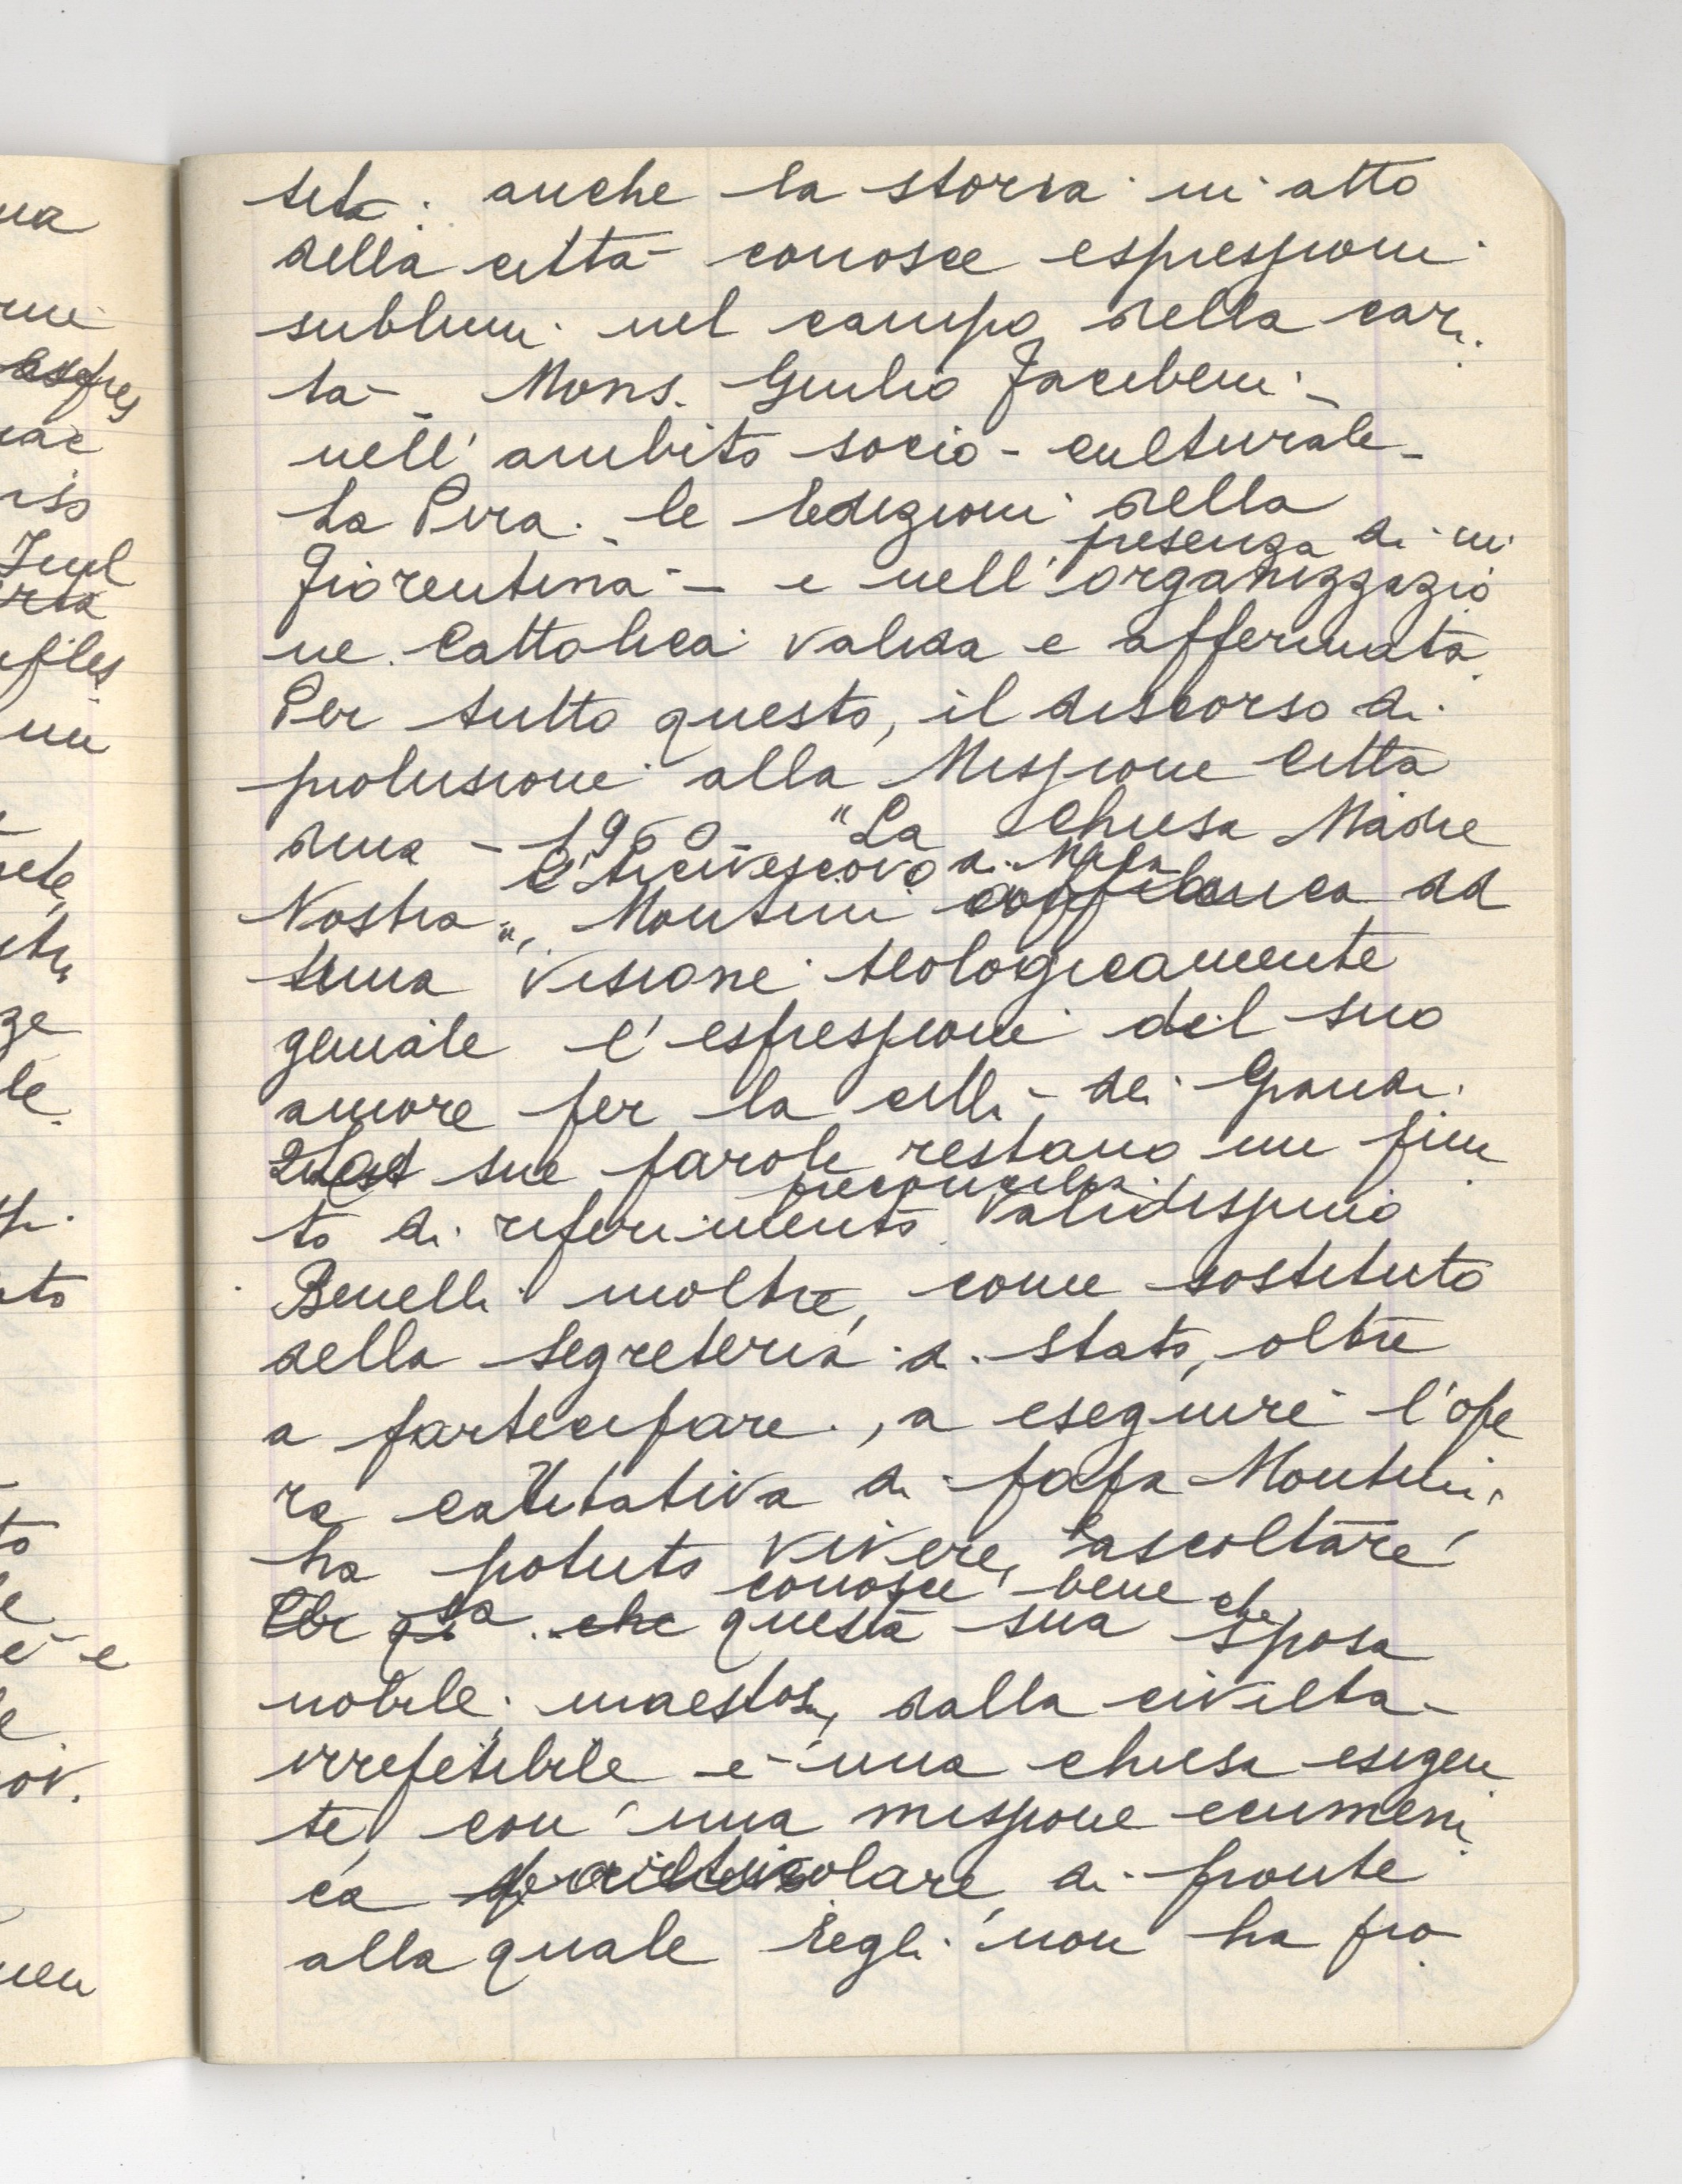 anche la storia in atto
della città conosce espressioni
sublimi nel campo della cari
tà - Mons. Giulio Facibeni -
nell'ambito socio-culturale -
La Pira. le edizioni della
Fiorentina - e nell'
presenza di un
organizzazio
ne Cattolica valida e affermata.
Per tutto questo, il discorso di
prolusione alla Missione Citta
dina - 1960 "La Chiesa Madre
L'Arcivescovo di
Nostra", Montini ad
una visione teologicamente
geniale l'espressione del suo
amore per la città dei Grandi.
sue parole restano un pun
to di riferimento
preconciliare
validissimo
Benelli inoltre, come sostituto
della Segreteria di Stato, oltre
a partecipare, a eseguire l'ope
ra caritativa di papa Montini,
ha potuto vivere, ascoltare
conosce bene che
sa che questa sua sposa
nobile, maestosa, dalla civiltà
irrepetibile è una chiesa esigen
te, con una missione ecumeni
ca particolare, di fronte
alla quale Egli non ha po
ua
ne
so
le
to
ze
le.
to
e
ov.